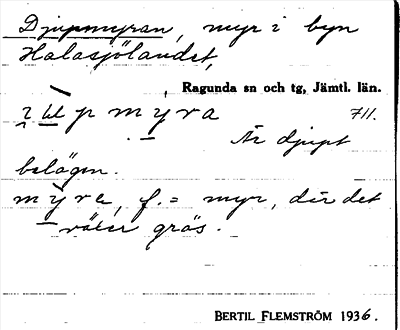 Djupmyran, myr i byn
Halasjölandet,
Ragunda sn och tg, Jämtl. län.
myra 711.
Är djupt
belägen.
myre, f. = myr, där det
växer gräs.
BERTIL FLEMSTRÖM 1936.